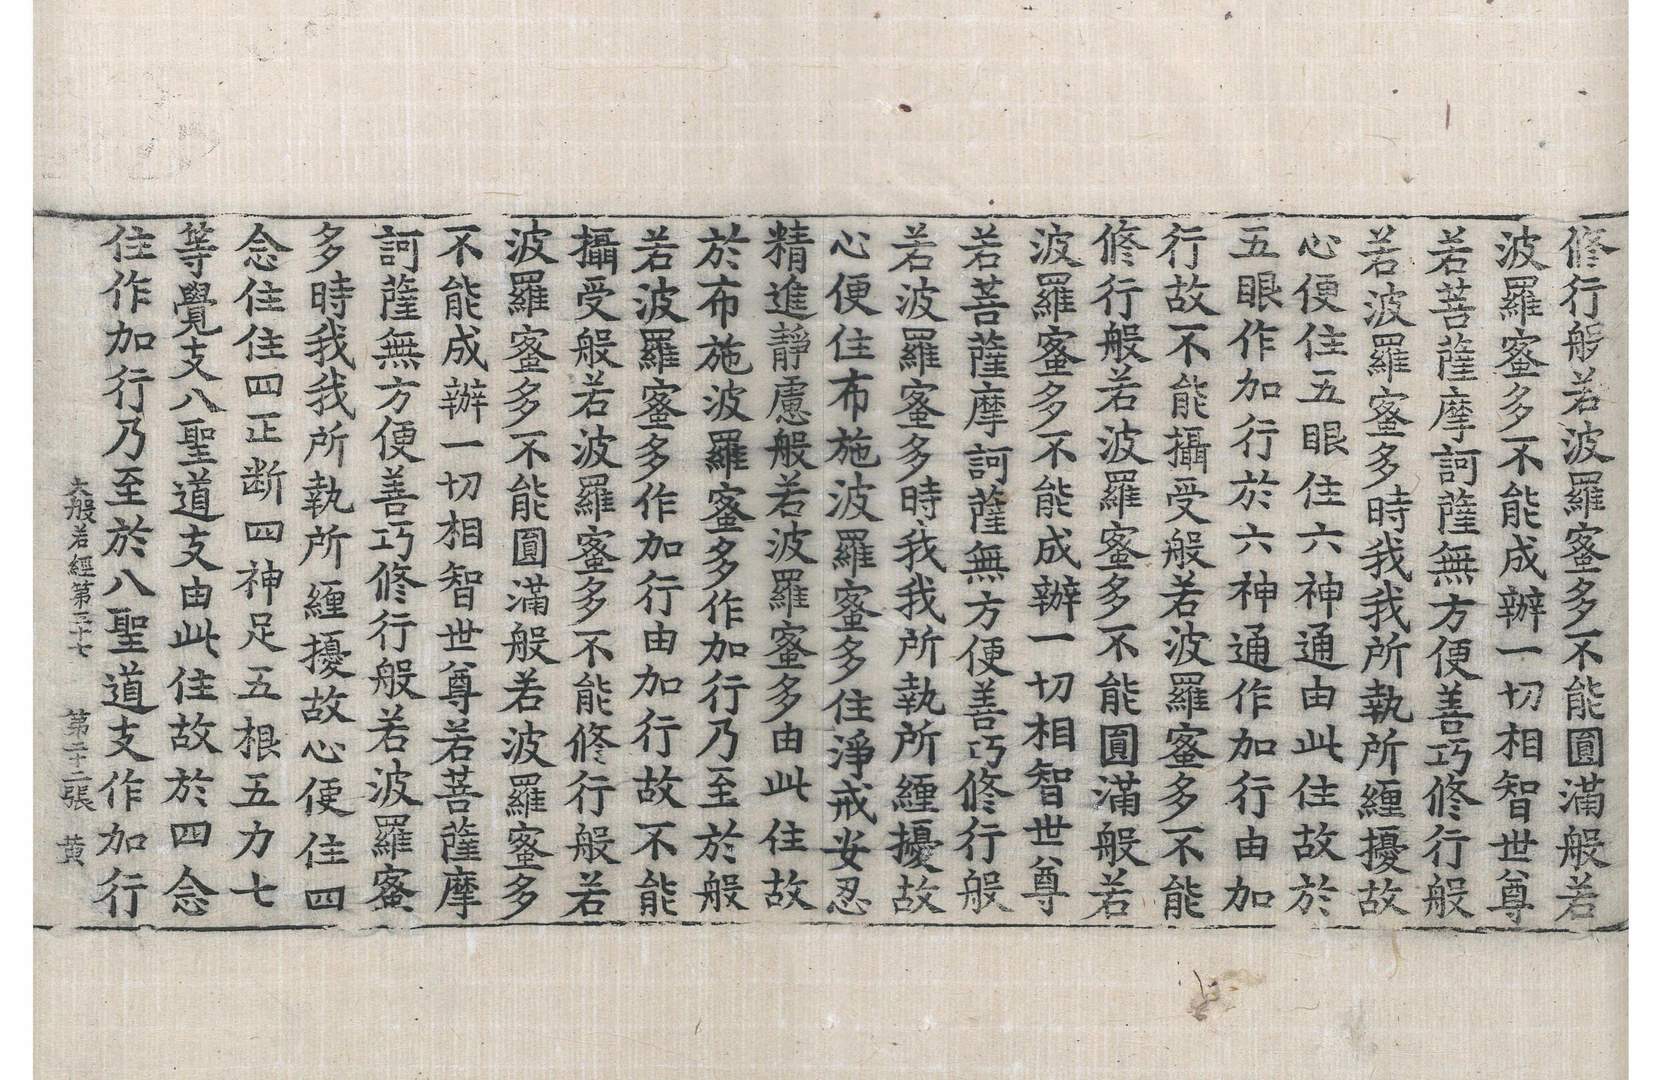 修行般若波羅蜜多不能圓滿般若
波羅蜜多不能成辦一切相智世尊
若菩薩摩訶薩無方便善巧修行般
若波羅蜜多時我我所執所纏擾故
心便住五眼住六神通由此住故於
五眼作加行於六神通作加行由加
行故不能攝受般若波羅蜜多不能
修行般若波羅蜜多不能圓滿般若
波羅蜜多不能成辦一切相智世尊
若菩薩摩訶薩無方便善巧修行般
若波羅蜜多時我我所執所纏擾故
心便住布施波羅蜜多住淨戒安忍
精進靜慮般若波羅蜜多由此住故
於布施波羅蜜多作加行乃至於般
若波羅蜜多作加行由加行故不能
攝受般若波羅蜜多不能修行般若
波羅蜜多不能圓滿般若波羅蜜多
不能成辦一切相智世尊若菩薩摩
訶薩無方便善巧修行般若波羅蜜
多時我我所執所纏擾故心便住四
念住住四正断四神足五根五力七
等覺支八聖道支由此住故於四念
住作加行乃至於八聖道支作加行
大般若經第三十七 第二十二張 黄